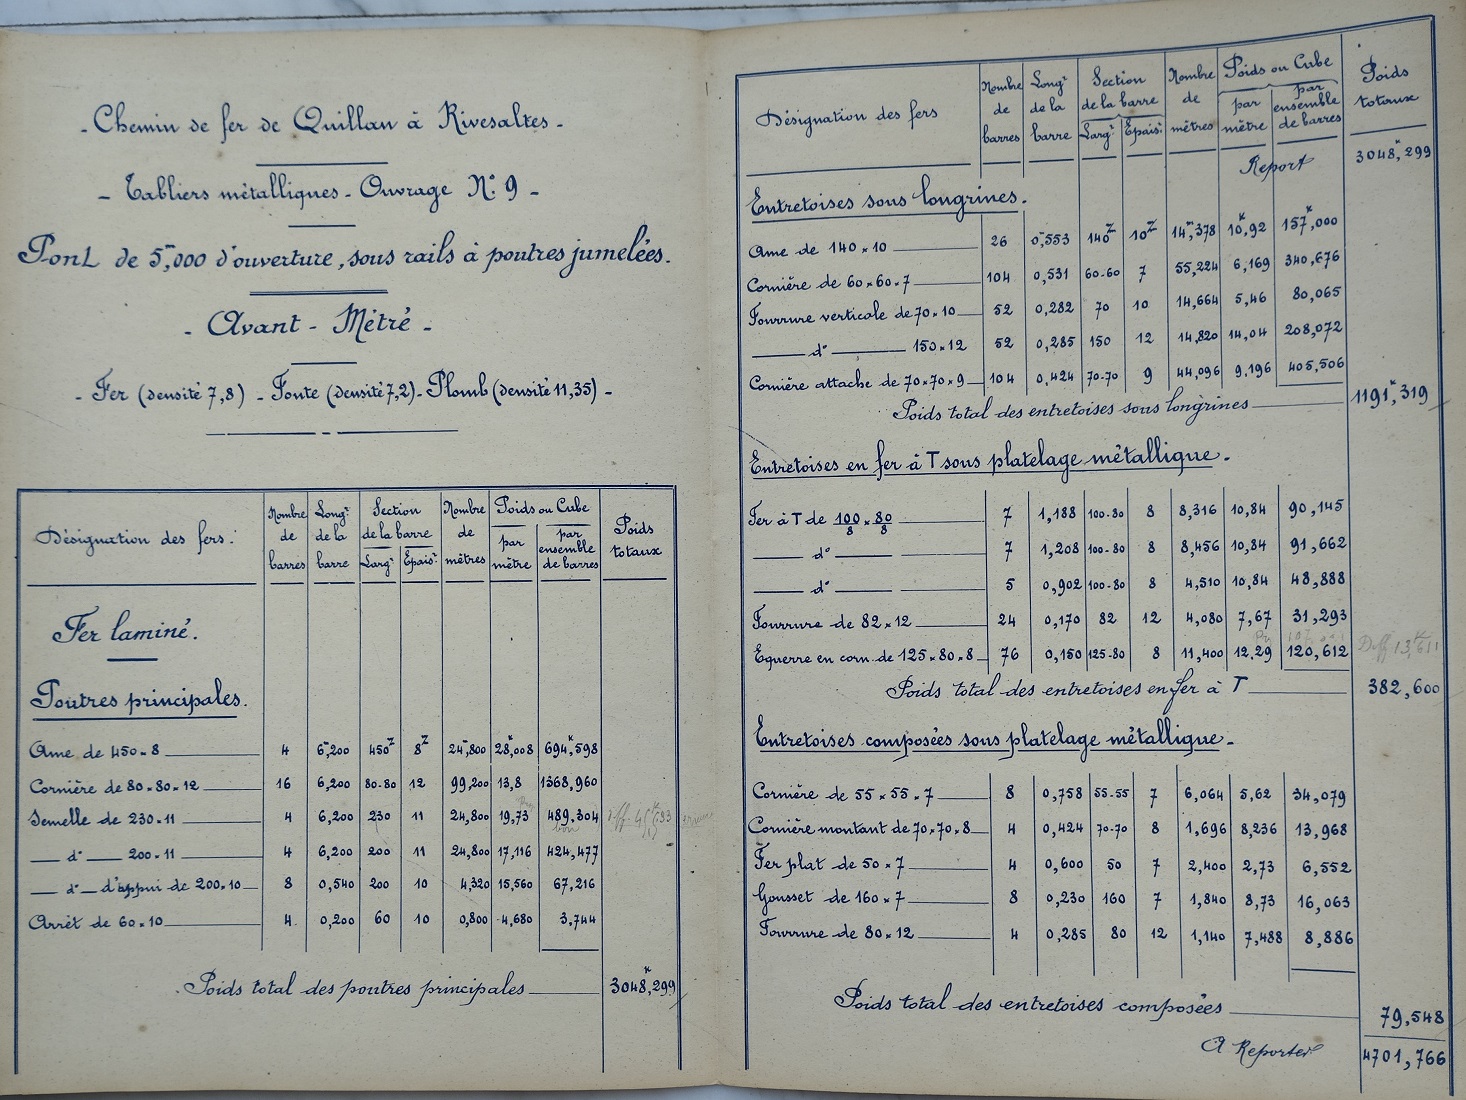 - Chemin de fer de Quillan à Rivesaltes -
- Tabliers métalliques - Ouvrage N.° 9 -
Pont de 5,ᵐ000 d'ouverture, sous rails à poutres jumelées.
- Avant - Métré -
- Fer (densité 7,8) - Fonte (densité 7,2) - Plomb (densité 11,35) -
Désignation des fers: Nombre de barres Long.ʳ de la barre Section de la barre Larg.ʳ Epais.ʳ Nombre de mètres Poids ou Cube par mètre par ensemble de barres Poids totaux
Fer laminé.
Poutres principales.
Ame de 450×8 4 6,ᵐ200 450 8 24,ᵐ800 28,ᵏ008 694,ᵏ598
Cornière de 80×80×12 16 6,200 80-80 12 99,200 13,8 1368,960
Semelle de 230×11 4 6,200 230 11 24,800 19,73 489,304
bon
— d° — 200×11 4 6,200 200 11 24,800 17,116 424,477
— d° — d'appui de 200×10 8 0,540 200 10 4,320 15,560 67,216
Arrêt de 60×10 4 0,200 60 10 0,800 4,680 3,744
Poids total des poutres principales 3048,ᵏ299
Désignation des fers Nombre de barres Long.ʳ de la barre Section de la barre Larg.ʳ Epais.ʳ Nombre de mètres Poids ou Cube par mètre par ensemble de barres Poids totaux
Report 3048,ᵏ299
Entretoises sous longrines.
Ame de 140×10 26 0,ᵐ553 140 10 14,ᵐ378 10,ᵏ92 157,ᵏ000
Cornière de 60×60×7 104 0,531 60-60 7 55,224 6,169 340,676
Fourrure verticale de 70×10 52 0,282 70 10 14,664 5,46 80,065
— d° — 150×12 52 0,285 150 12 14,820 14,04 208,072
Cornière attache de 70×70×9 104 0,424 70-70 9 44,096 9,196 405,506
Poids total des entretoises sous longrines 1191,ᵏ319
Entretoises en fer à T sous platelage métallique.
Fer à T de 100/8 × 80/8 7 1,188 100-80 8 8,316 10,84 90,145
— d° — 7 1,208 100-80 8 8,456 10,84 91,662
— d° — 5 0,902 100-80 8 4,510 10,84 48,888
Fourrure de 82×12 24 0,170 82 12 4,080 7,67 31,293
Equerre en corn. de 125×80×8 76 0,150 125-80 8 11,400 12,29 120,612
Poids total des entretoises en fer à T 382,600
Entretoises composées sous platelage métallique.
Cornière de 55×55×7 8 0,758 55-55 7 6,064 5,62 34,079
Cornière montant de 70×70×8 4 0,424 70-70 8 1,696 8,236 13,968
Fer plat de 50×7 4 0,600 50 7 2,400 2,73 6,552
Gousset de 160×7 8 0,230 160 7 1,840 8,73 16,063
Fourrure de 80×12 4 0,285 80 12 1,140 7,488 8,886
Poids total des entretoises composées 79,548
A Reporter 4701,766